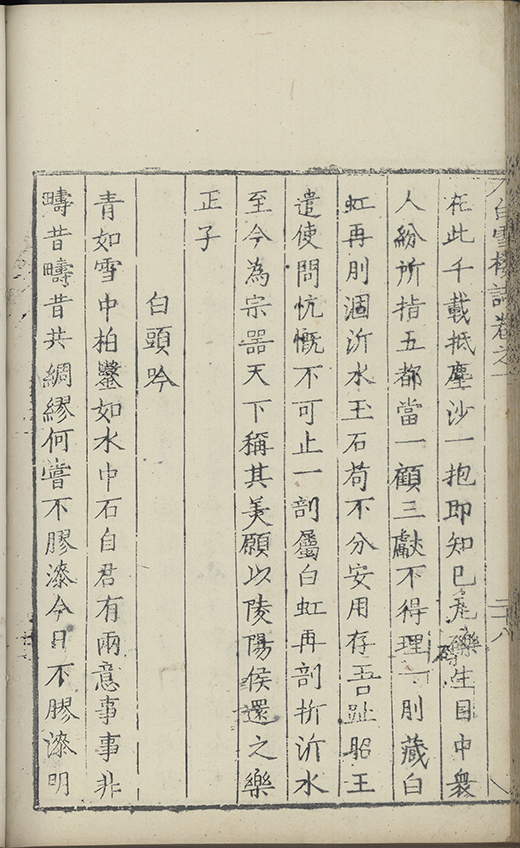 白雪樓詩卷之一 二十八
在此千載抵塵沙一抱即知已礫生目中衆
人紛所指五都當一顧三獻不得理一刖藏白
虹再刖涸沂水玉石苟不分安用存吾趾昭王
遣使問忼慨不可止一剖屬白虹再剖折沂水
至今為宗器天下稱其美願以陵陽侯還之樂
正子
白頭吟
青如雪中柏鑿如水中石自君有兩意事事非
疇昔疇昔共綢繆何嘗不膠漆今日不膠漆明